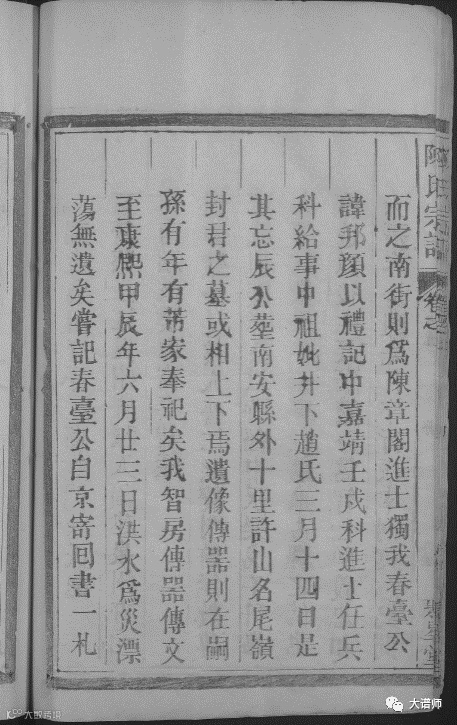 陳氏宗譜 卷之
而之南街則爲陳章閣進士獨我春臺公
諱邦顔以禮記中嘉靖壬戌科進士任兵
科給事中祖妣井下趙氏三月十四日是
其忘辰公塟南安縣外十里許山名尾嶺
封君之墓或相上下焉遺像傳器則在嗣
孫有年有芾家奉祀矣我智房傳器傳文
至康熙甲辰年六月廿三日洪水爲災漂
蕩無遺矣嘗記春臺公自京寄回書一札
大谱师